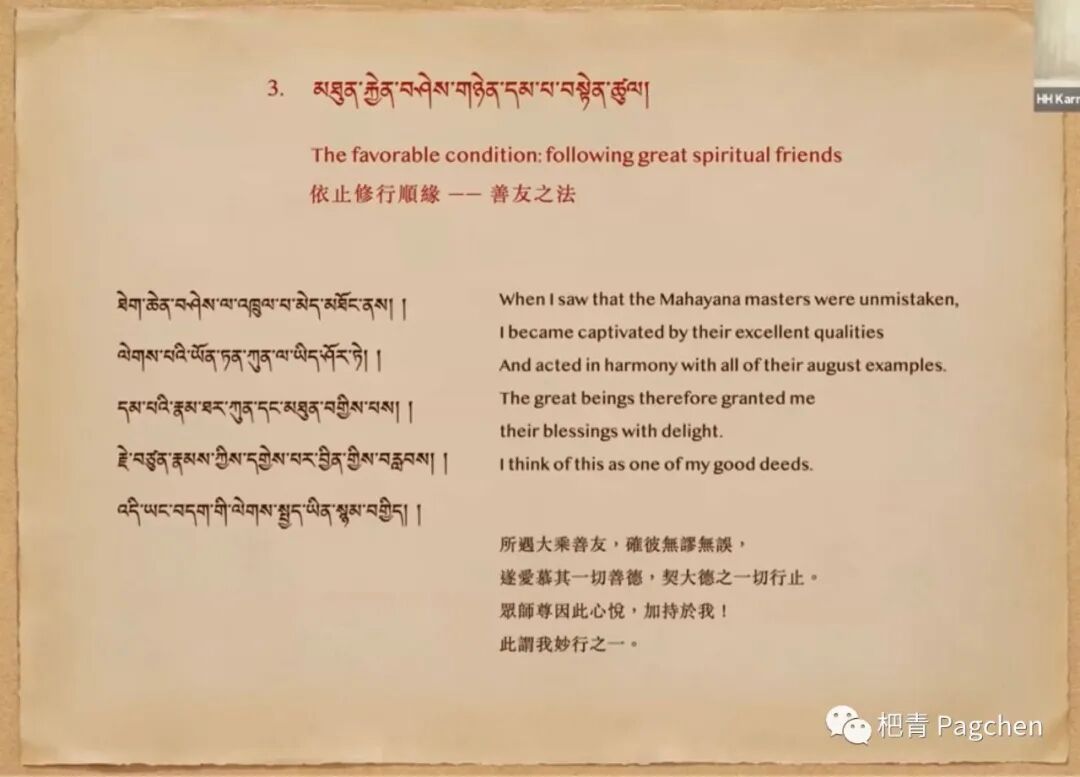 3. མཐུན་རྐྱེན་བཤེས་གཉེན་དམ་པ་བསྟེན་ཚུལ།
The favorable condition: following great spiritual friends
依止修行順緣 —— 善友之法
ཐེག་ཆེན་བཤེས་ལ་འཁྲུལ་པ་མེད་མཐོང་ནས། །
ལེགས་པའི་ཡོན་ཏན་ཀུན་ལ་ཡིད་ཤོར་ཏེ། །
དམ་པའི་རྣམ་ཐར་ཀུན་དང་མཐུན་བགྱིས་པས། །
རྗེ་བཙུན་རྣམས་ཀྱིས་དགྱེས་པར་བྱིན་གྱིས་བརླབས། །
འདི་ཡང་བདག་གི་ལེགས་སྤྱད་ཡིན་སྙམ་བགྱིད། །
When I saw that the Mahayana masters were unmistaken,
I became captivated by their excellent qualities
And acted in harmony with all of their august examples.
The great beings therefore granted me
their blessings with delight.
I think of this as one of my good deeds.
所遇大乘善友，確彼無謬無誤，
遂愛慕其一切善德，契大德之一切行止。
眾師尊因此心悅，加持於我！
此謂我妙行之一。
HH Karm
杷青 Pagchen